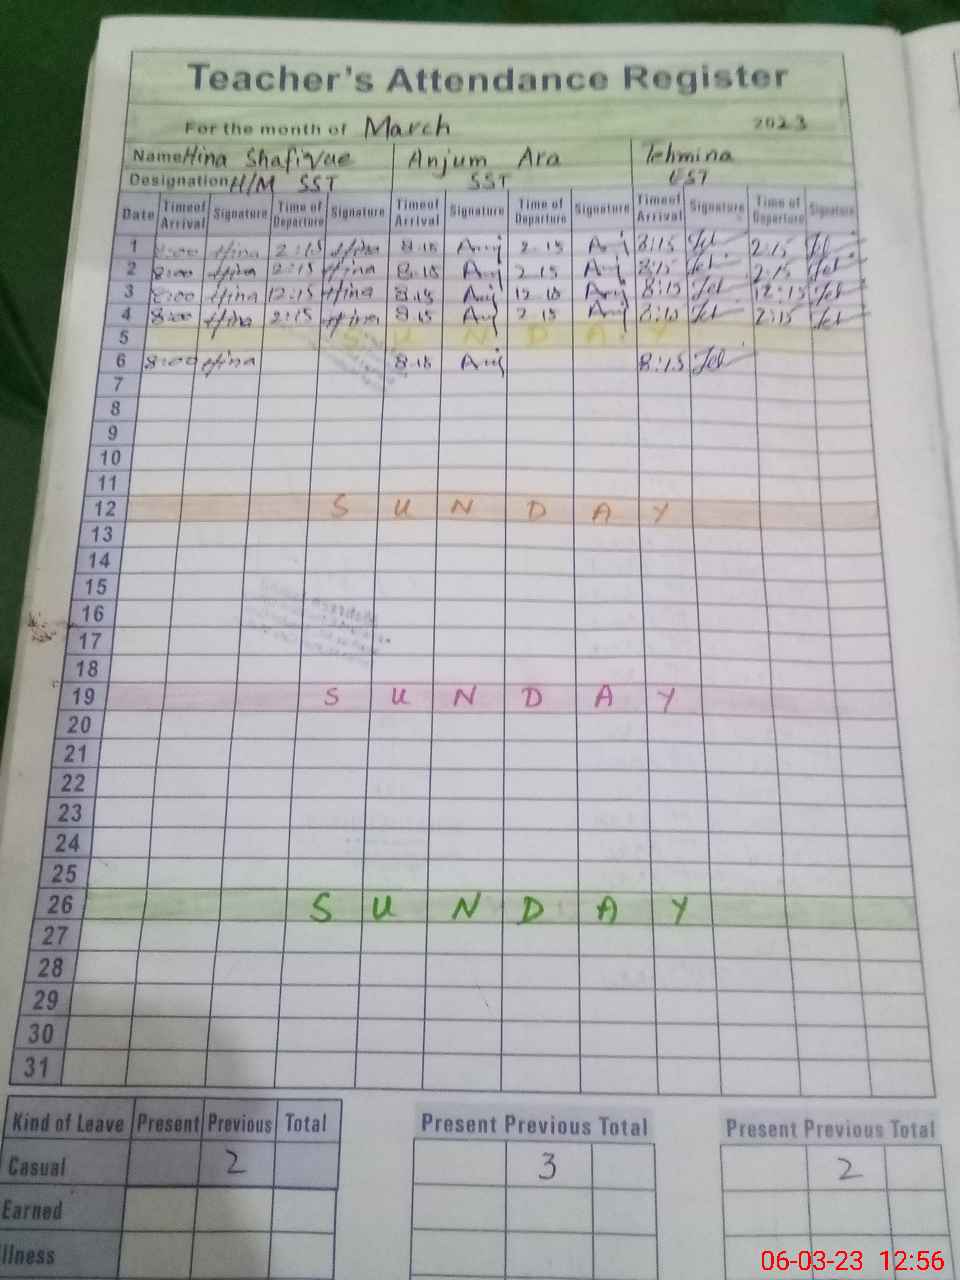 Teacher's Attendance Register
For the month of March 2023
Name Hina Shafique Anjum Ara Tehmina
Designation H/M SST SST EST
Date Timeof Arrival Signature Time of Departure Signature Timeof Arrival Signature Time of Departure Signature Timeof Arrival Signature Time of Departure Signature
1 8:00 Hina 2:15 Hina 8.15 Anj 2.15 Anj 8:15 2:15
2 8:00 Hina 2:15 Hina 8.15 Anj 2.15 Anj 8:15 2:15
3 8:00 Hina 12:15 Hina 8.15 Anj 12.15 Anj 8:15 12:15
4 8:00 Hina 2:15 Hina 8.15 Anj 2.15 Anj 8:15 2:15
5 SUNDAY
6 8:00 Hina 8.15 Anj 8:15
7
8
9
10
11
12 SUNDAY
13
14
15
16
17
18
19 SUNDAY
20
21
22
23
24
25
26 SUNDAY
27
28
29
30
31
Kind of Leave Present Previous Total Present Previous Total Present Previous Total
Casual 2 3 2
Earned
Illness
06-03-23 12:56